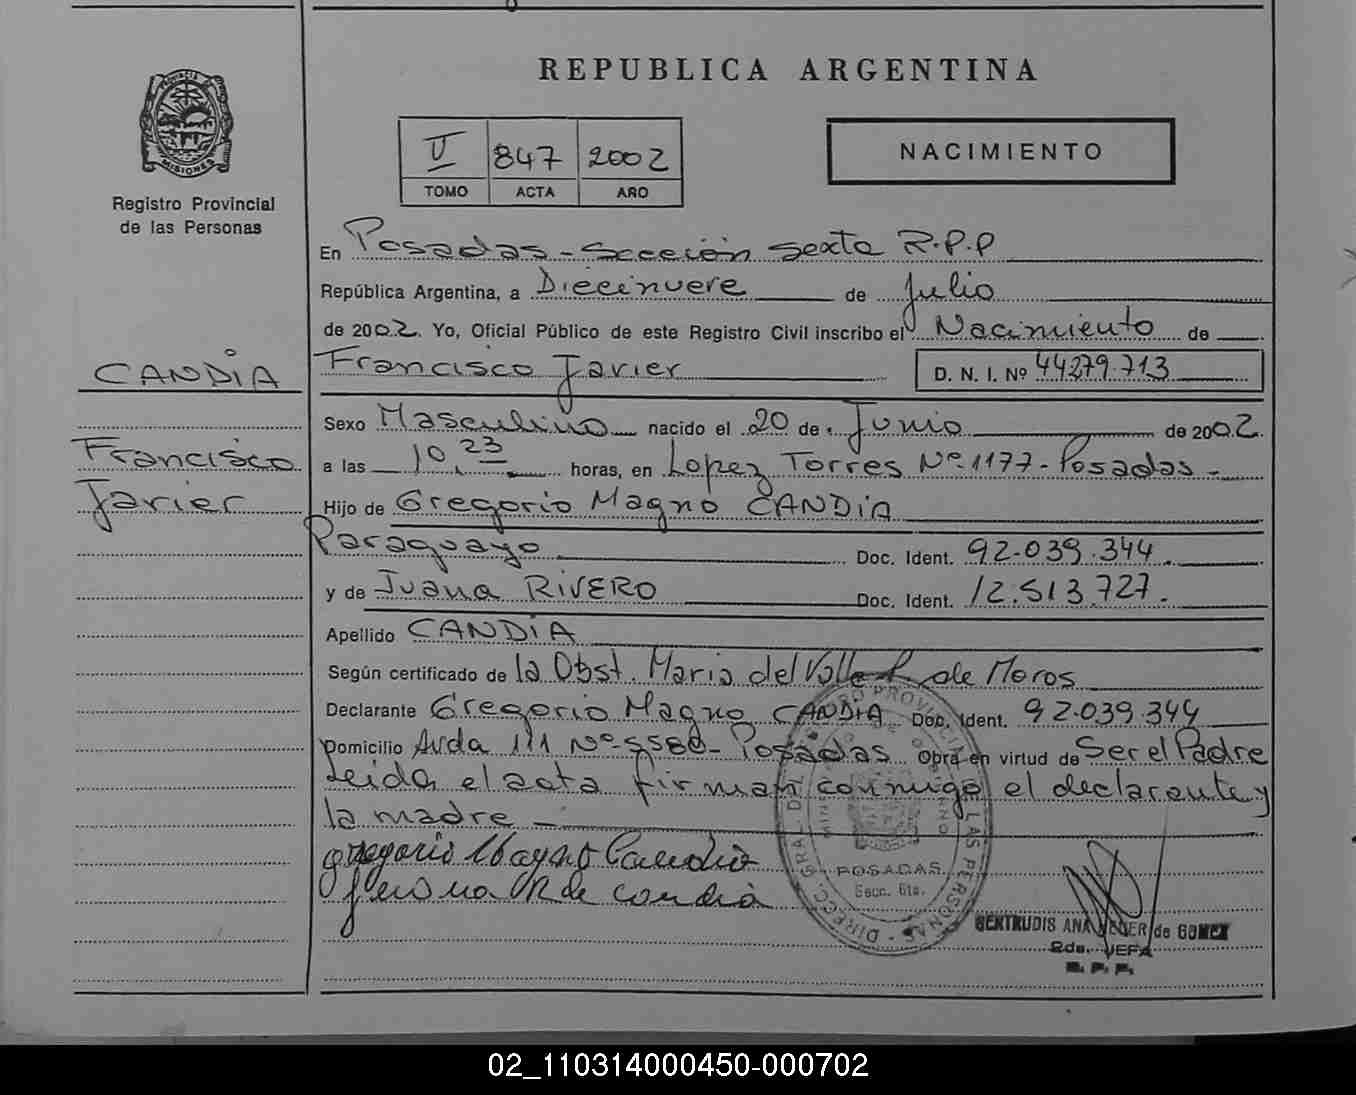 REPUBLICA ARGENTINA
PROVINCIA DE
MISIONES
Registro Provincial
de las Personas
V 847 2002
TOMO ACTA AÑO
NACIMIENTO
En Posadas - Sección Sexta R.P.P
República Argentina, a Diecinueve de Julio
de 2002 Yo, Oficial Público de este Registro Civil inscribo el Nacimiento de
Francisco Javier D. N. I. Nº 44279.713
CANDIA
Francisco
Javier
Sexo Masculino nacido el 20 de Junio de 2002.
a las 10,23 horas, en Lopez Torres Nº 1177 - Posadas -
Hijo de Gregorio Magno CANDIA
Paraguayo Doc. Ident. 92.039.344.
y de Juana RIVERO Doc. Ident. 12.513.727.
Apellido CANDIA
Según certificado de la Obst. Maria del Valle de Moros
Declarante Gregorio Magno CANDIA Doc. Ident. 92.039.344
Domicilio Avda 111 Nº 5580 - Posadas Obra en virtud de Ser el Padre
Leida el acta firman conmigo el declarante y
la madre
gregorio Magno Candia
Juana R de candia
DIRECC. GRAL. DEL REGISTRO PROVINCIAL DE LAS PERSONAS
MINISTERIO DE GOBIERNO
POSADAS
Secc. 6ta.
GERTRUDIS ANA de GOMEZ
2da. JEFA
R. P. P.
02_110314000450-000702